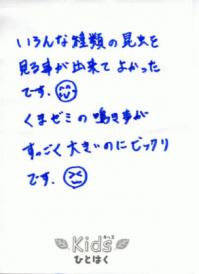 いろんな種類の昆虫を
見る事が出来てよかった
です。
くまゼミの鳴き声が
すっごく大きいのにビックリ
です。
Kids
キッズ
ひとはく